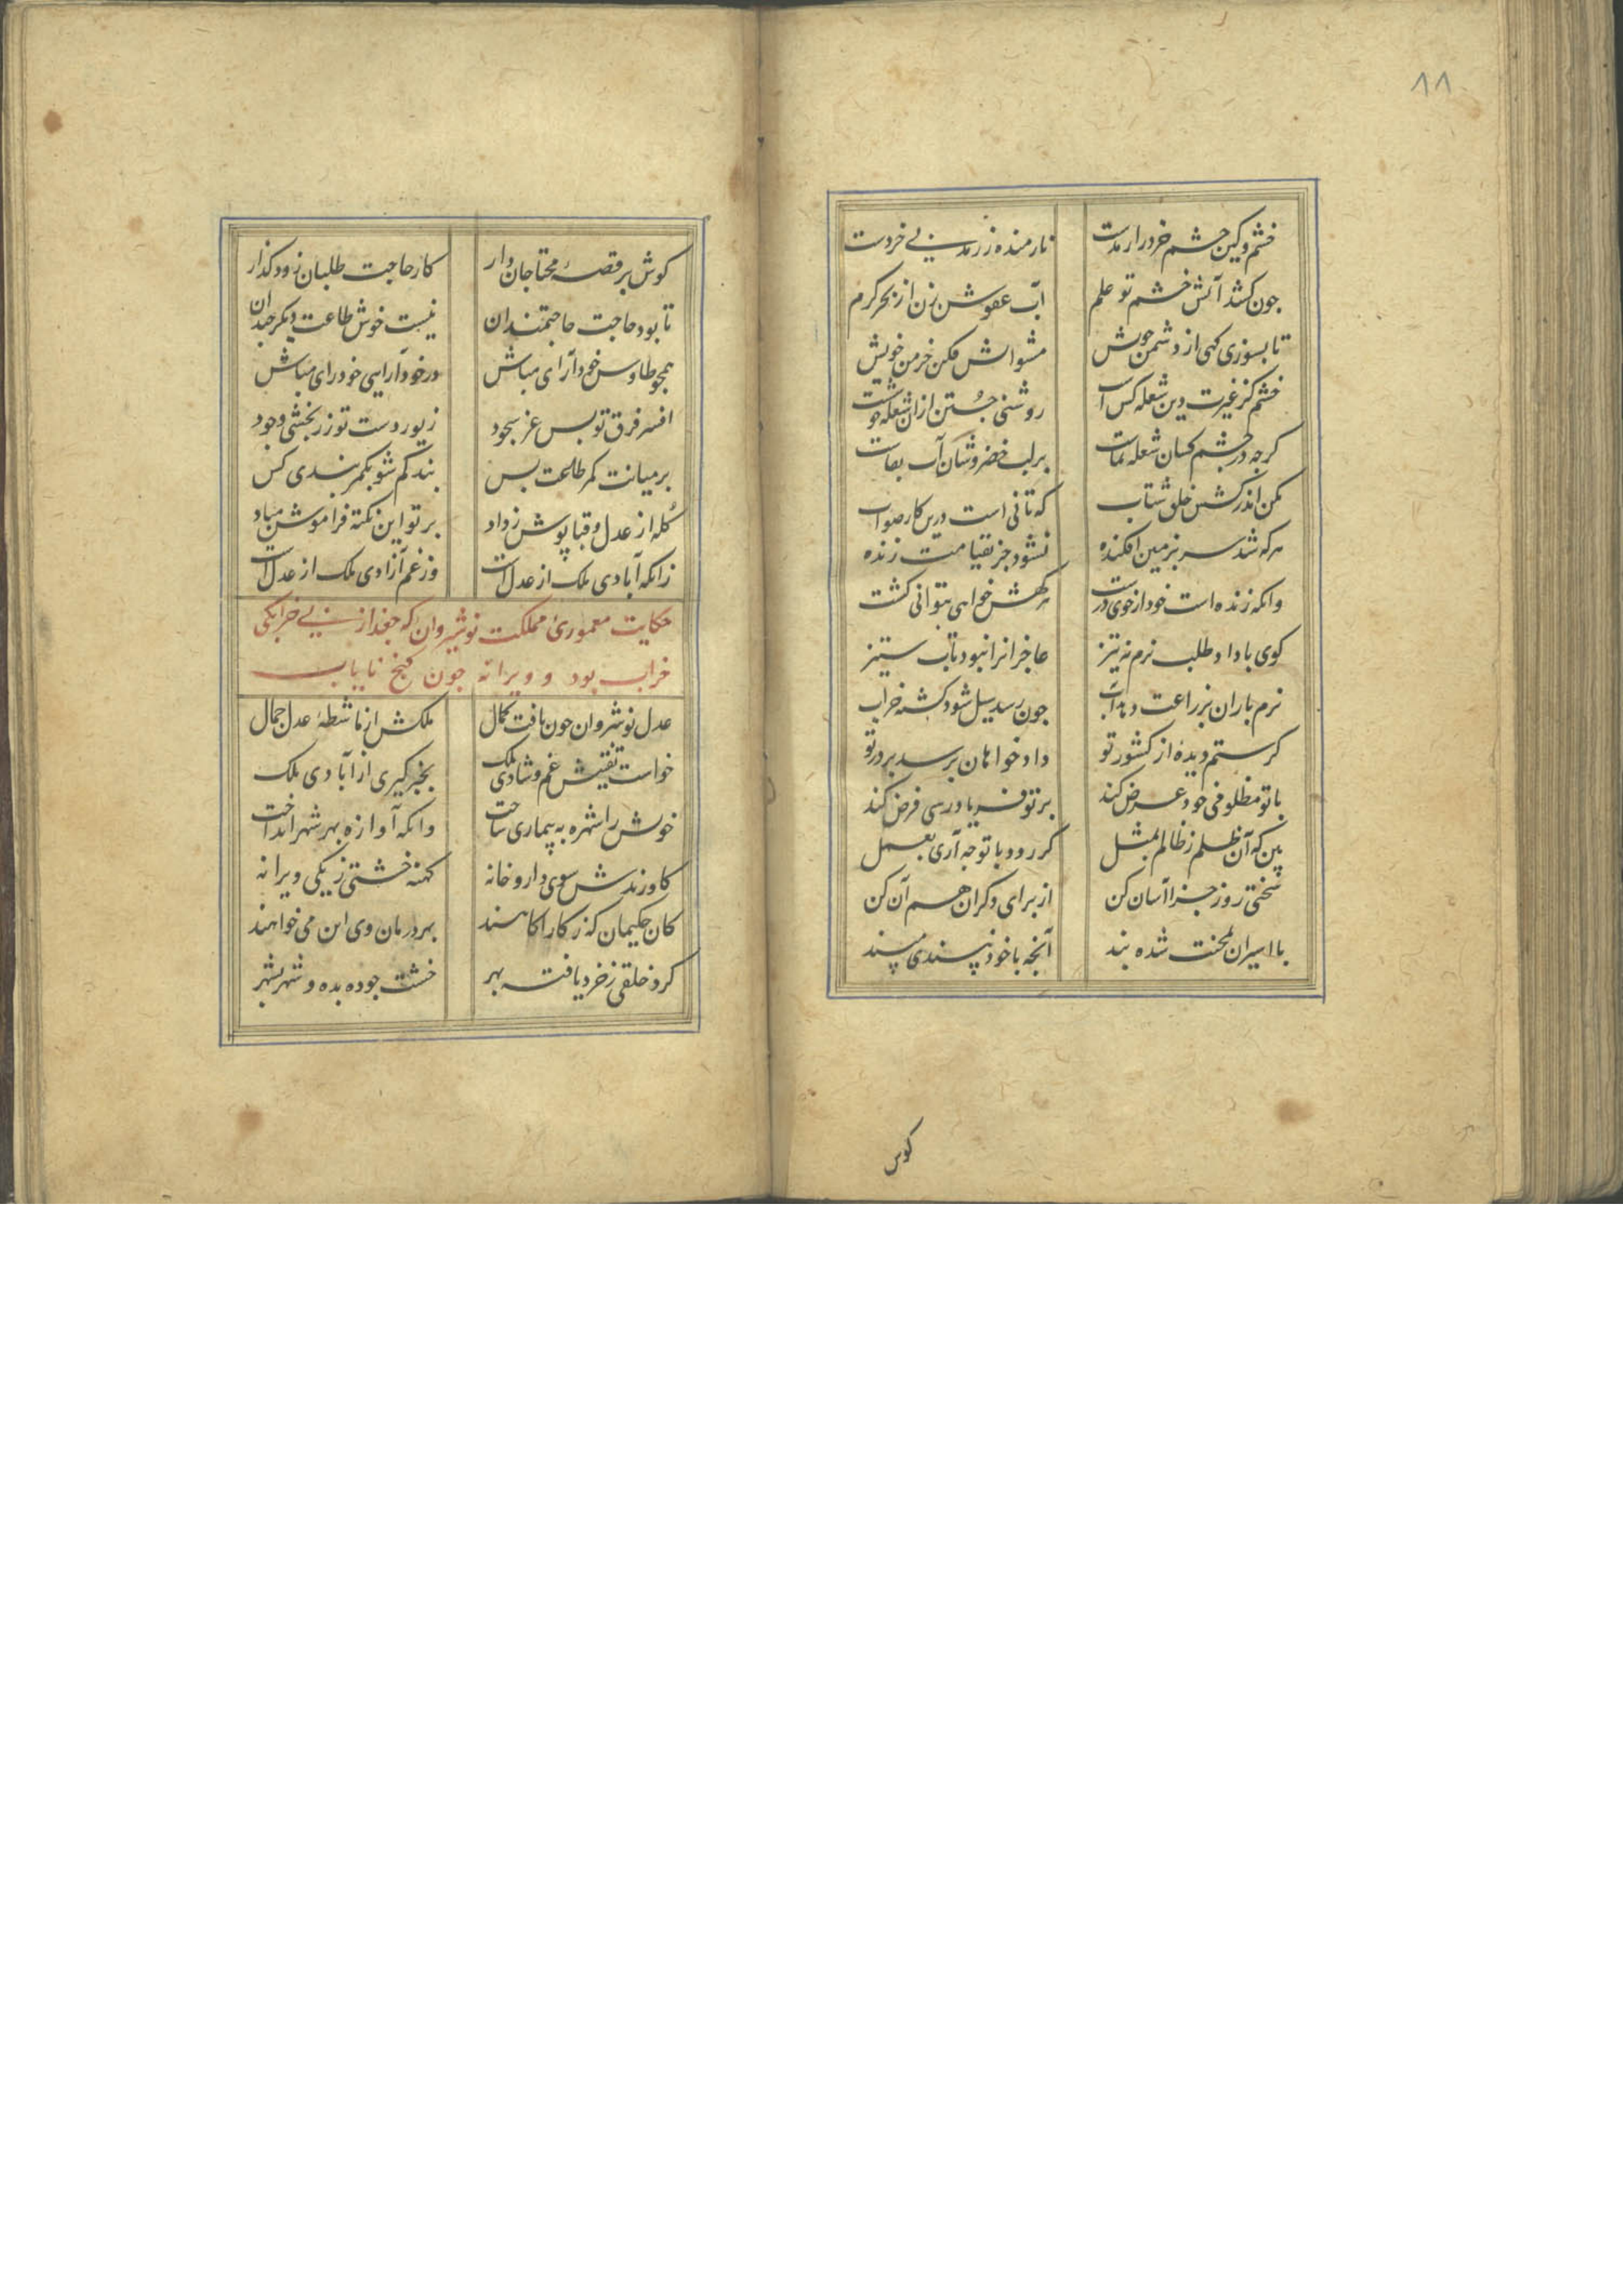 ۸۸
خشم و کین چشم خرد را رمدست نارمنده ز رمد بی خردست
چون کشد آتش خشم تو علم آب عفوش زن از بحر کرم
تا بسوزی کهی از دشمن خویش مشو آتش فکن خرمن خویش
خشم کز غیرت دین شعله کش است روشنی جستن ازان شعله خوشست
کرچه در چشم کسان شعله نماست بر لب خضروشان آب بقاست
مکن اندر کشش خلق شتاب که تانی است درین کار صواب
هر که شد سر بزمین افکنده نشود جز بقیامت زنده
وانکه زنده است خود از خوی درشت هر کهش خواهی بتوانی کشت
کوی با داد طلب نرم نه تیز عاجزانرا نبود تاب ستیز
نرم باران بزراعت دهد آب چون رسد سیل شود کشته خراب
کر ستم دیدهٔ از کشور تو داد خواهان برسد بر در تو
با تو مظلومی خود عرض کند بر تو فریادرسی فرض کند
بین که آن ظلم ز ظالم بمثل کر رود با تو چه آری بعمل
سختی روز جزا آسان کن از برای دکران هم آن کن
با اسیران بمحنت شده بند آنچه با خود نپسندی مپسند
کوش
کوش بر قصهٔ محتاجان دار کار حاجت طلبان زود کذار
تا بود حاجت حاجتمندان نیست خوش طاعت دیکر چندان
همچو طاوس خود آرای مباش در خود آرایی خود رای مباش
افسر فرق تو بس عز سجود زیور دست تو زر بخشی و جود
بر میانت کمر طاعت بس بند کم شو بکمر بندی کس
کله از عدل و قبا پوش ز داد بر تو این نکته فراموش مباد
زانکه آبادی ملک از عدل است وز غم آزادی ملک از عدل است
حکایت معموریٔ مملکت نوشیروان که جغد از بی خرابکی
خراب بود و ویرانه چون کنج نایاب
عدل نوشروان چون یافت کمال ملکش از ماشطهٔ عدل جمال
خواست تفتیش غم و شادی ملک بخبر کیری از آبادی ملک
خویش را شهره به بیماری ساخت وانکه آوازه بهر شهر انداخت
کاورندش سوی داروخانه کهنه خشتی ز یکی ویرانه
کان حکیمان که ز کار آکاهند بهر درمان وی این می خواهند
کرد خلقی ز خرد یافته بهر خشت جو ده بده و شهر بشهر